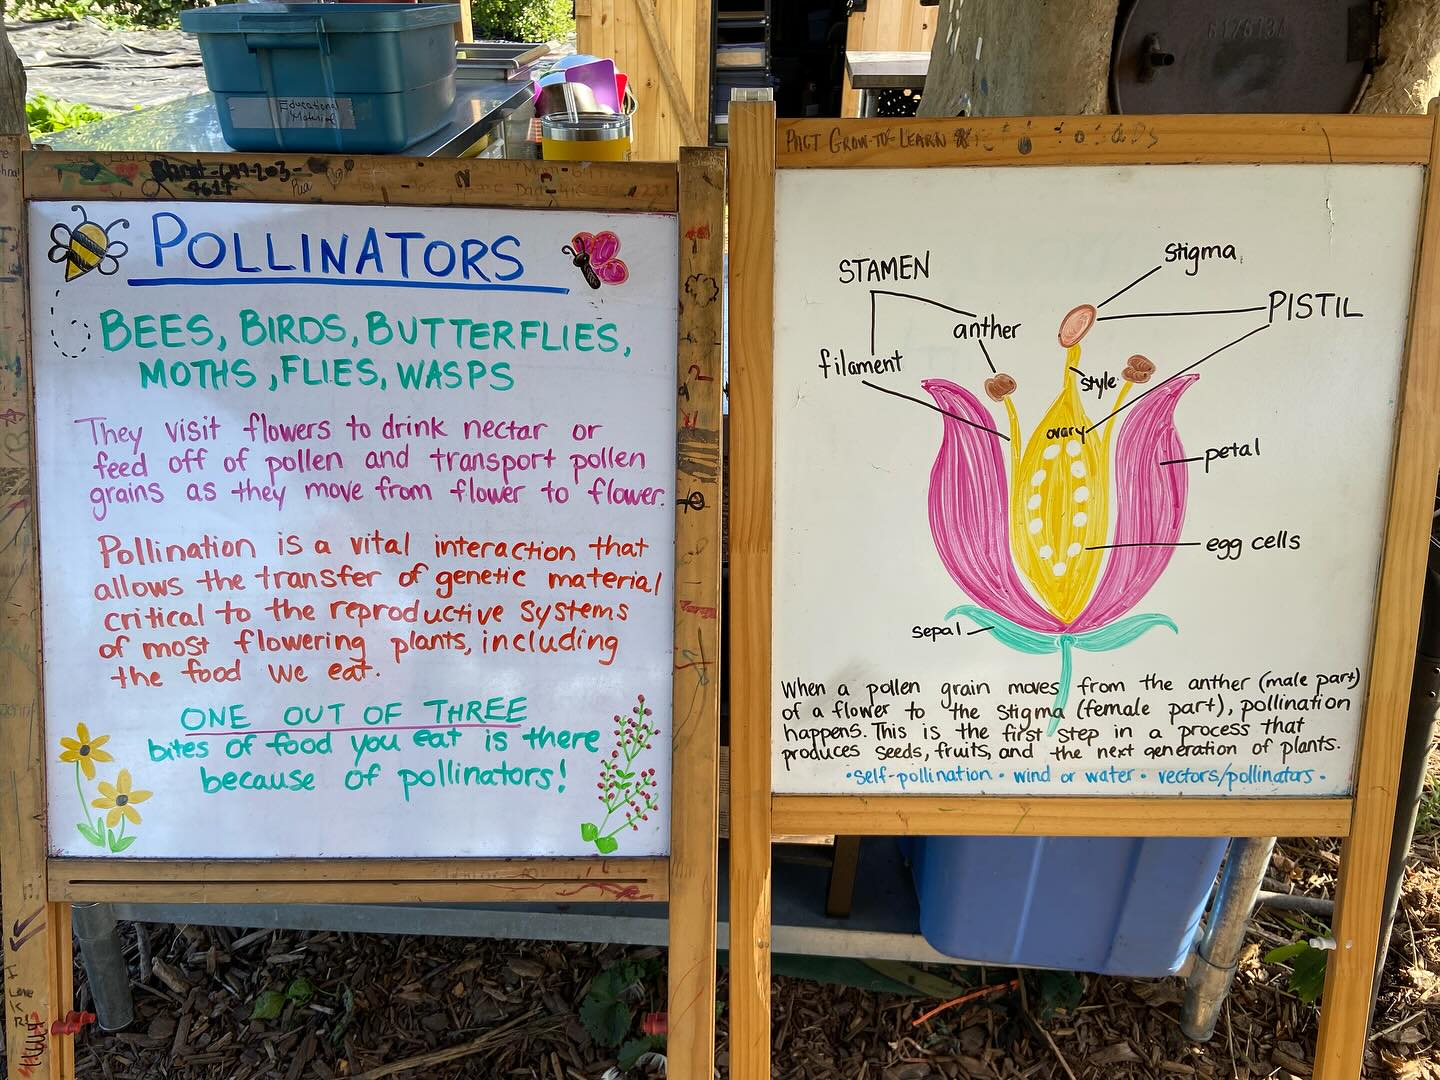 Educational
Material
POLLINATORS
BEES, BIRDS, BUTTERFLIES,
MOTHS, FLIES, WASPS
They visit flowers to drink nectar or
feed off of pollen and transport pollen
grains as they move from flower to flower.
Pollination is a vital interaction that
allows the transfer of genetic material
critical to the reproductive systems
of most flowering plants, including
the food we eat.
ONE OUT OF THREE
bites of food you eat is there
because of pollinators!
617813A
PACT GROW-TO-LEARN
STAMEN
anther
filament
stigma
PISTIL
style
ovary
petal
egg cells
sepal
When a pollen grain moves from the anther (male part)
of a flower to the stigma (female part), pollination
happens. This is the first step in a process that
produces seeds, fruits, and the next generation of plants.
•self-pollination • wind or water • vectors/pollinators •